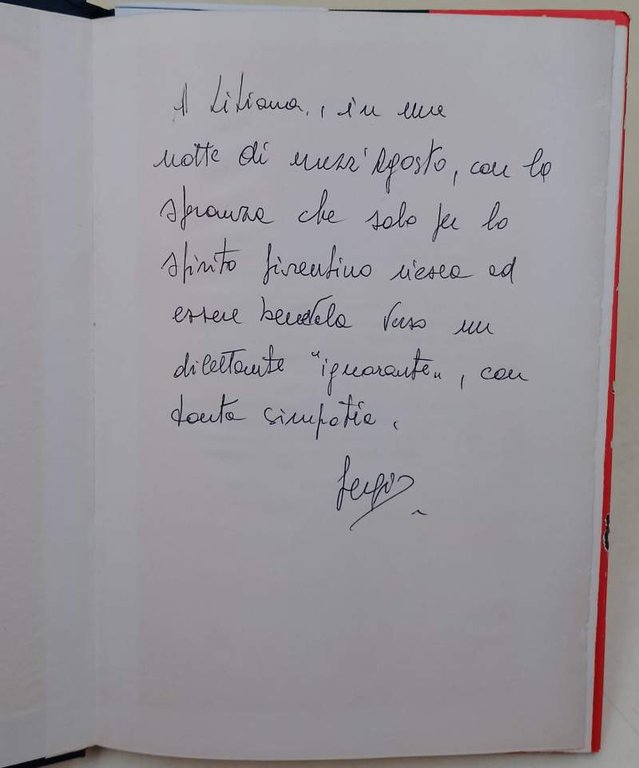 A Liliana, in una
notte di mezz'Agosto, con la
speranza che solo per lo
spirito fiorentino riesca ad
essere benevola verso un
dilettante "ignorante", con
tanta simpatia.
Sergio